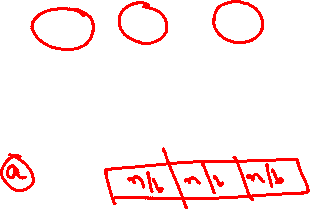 a n/b n/b n/b